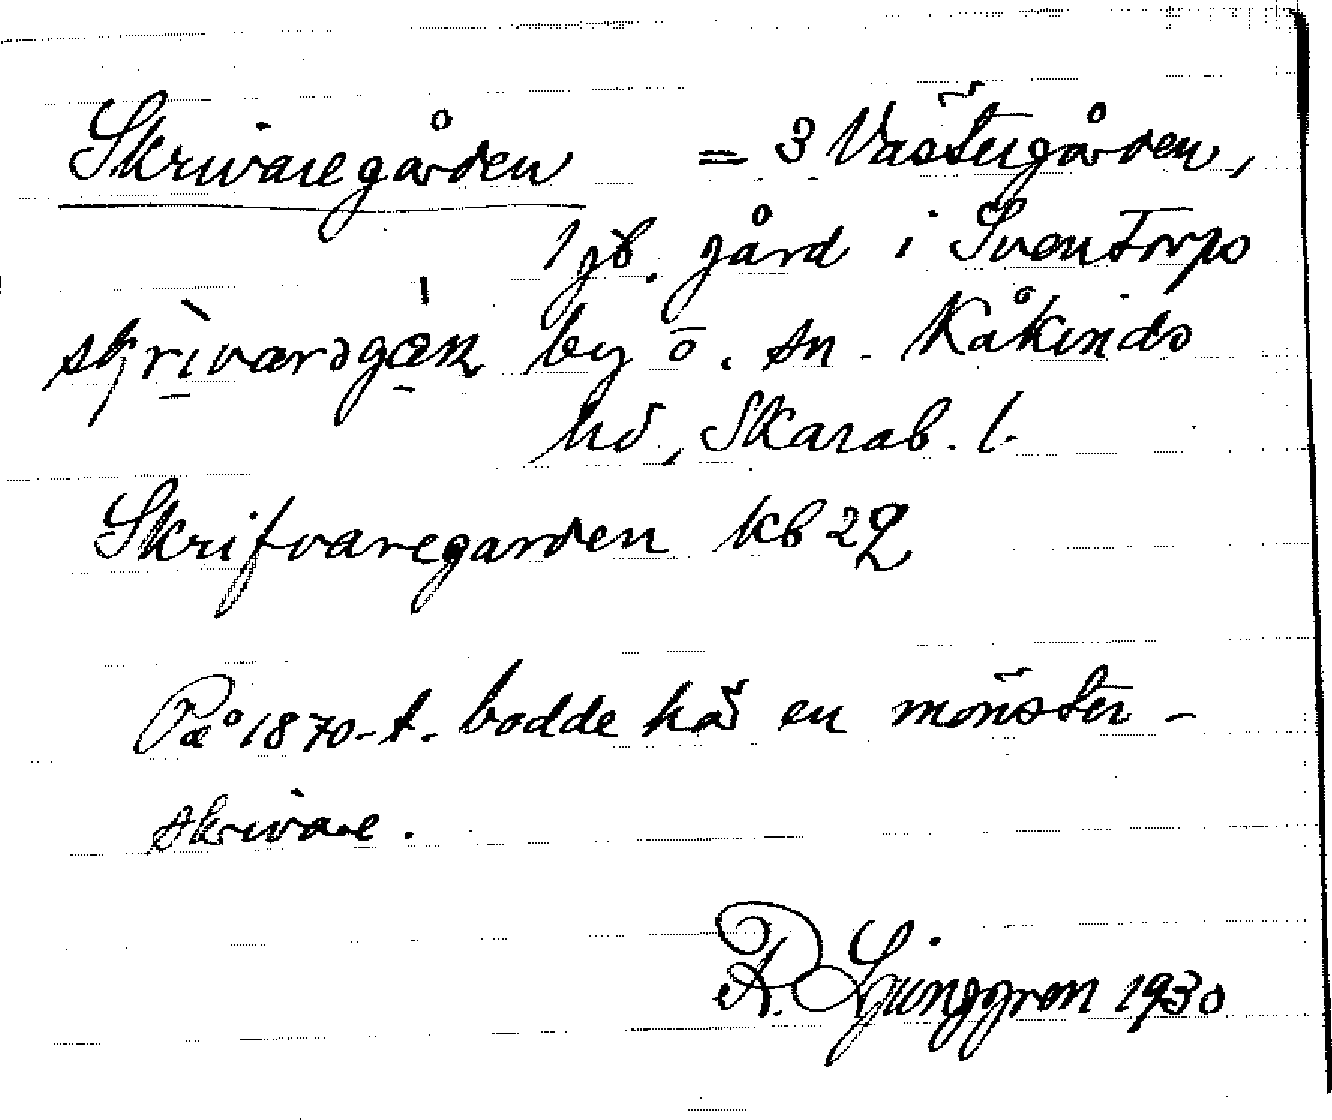 Skrivaregården = 3 Västergården,
1 gb. gård i Sventorps
by o. sn. Kåkinds
hd, Skarab. l.
Skrifvaregarden kb 22
På 1870-t. bodde här en mönster-
skrivare.
R. Ljunggren 1930